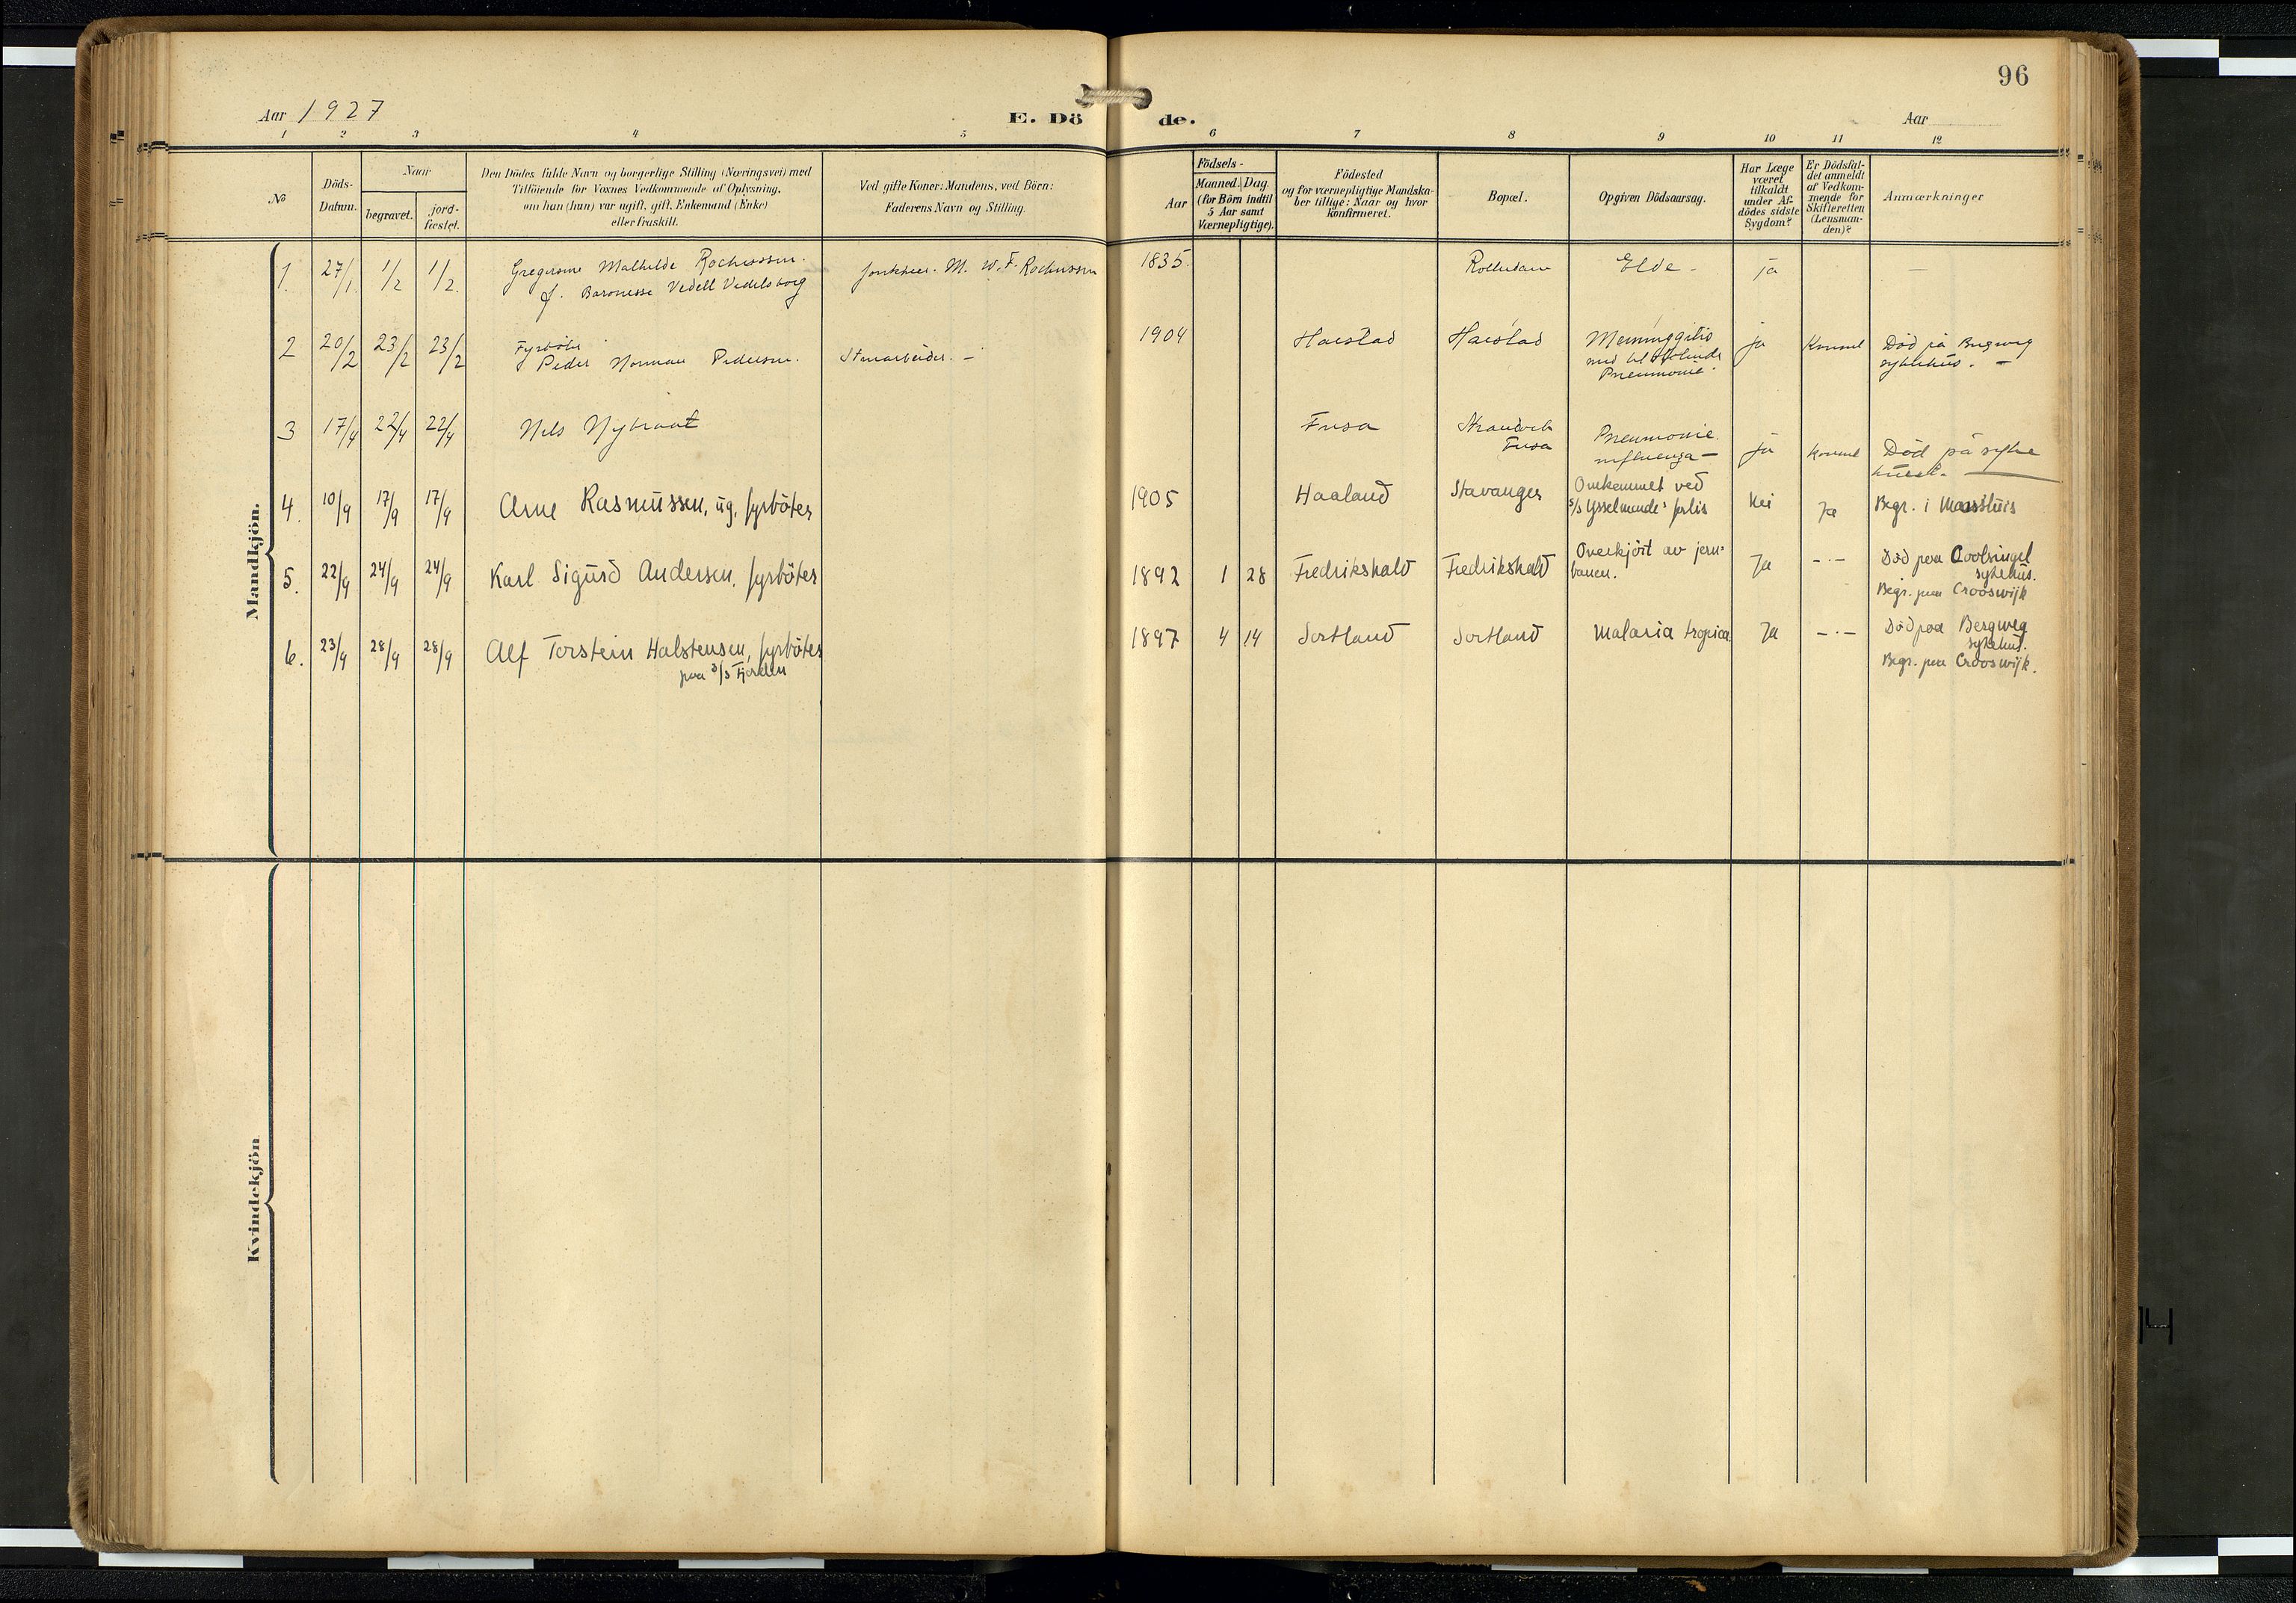 96
Aar 1927
E. Dö de.
Aar
1 2 3 4 5 6 7 8 9 10 11 12
No
Döds-
Datum.
Naar
begravet.
jord-
fæstet.
Den Dödes fulde Navn og borgerlige Stilling (Næringsvei) med
Tilföiende for Voxnes Vedkommende af Oplysning,
om han (hun) var ugift, gift, Enkemand (Enke)
eller fraskilt.
Ved gifte Koner: Mandens, ved Börn:
Faderens Navn og Stilling.
Födsels-
Aar
Maaned. Dag.
(for Börn indtil
5 Aar samt
Værnepligtige).
Födested
og for værnepligtige Mandska-
ber tillige: Naar og hvor
konfirmeret.
Bopæl.
Opgiven Dödsaarsag.
Har Læge
været
tilkaldt
under Af-
dödes sidste
Sygdom?
Er Dödsfal-
det anmeldt
af Vedkom-
mende for
Skifteretten
(Lensman-
den)?
Anmærkninger
Mandkjön.
1. 27/1 1/2 1/2 Gregersine Mathilde Rochussen. Jonkheer. M. W. F. Rochussen 1835. Rotterdam Elde - ja —
f. Baronesse Vedell Vedelsborg
2 20/2 23/2 23/2 Fyrböter
Peder Norman Pedersen. Stenarbeider. — 1904 Harstad Harstad Meninggitis ja Konsul Död på Bergweg
med tilstötende
Pneumonie. sykehus. —
3 17/4 22/4 22/4 Nils Nybraat Fusa Strandvik
Fusa Pneumonie.
influenza — ja konsul Död på syke
huset.
4. 10/9 17/9 17/9 Arne Rasmussen, ug. fyrböter 1905 Haaland Stavanger Omkommet ved
s/s Ysselmonde's forlis Nei Ja Begr. i Maassluis
5. 22/9 24/9 24/9 Karl Sigurd Andersen, fyrböter 1892 1 28 Fredrikshald Fredrikshald Overkjört av jern-
banen. Ja -·- Död paa Coolsingel
sykehus.
Begr. paa Crooswijk
6. 23/9 28/9 28/9 Alf Torstein Halstensen, fyrböter
paa s/s Fjorden 1897 4 14 Sortland Sortland Malaria tropica Ja -·- Död paa Bergweg
sykehus.
Begr. paa Crooswijk.
Kvindekjön